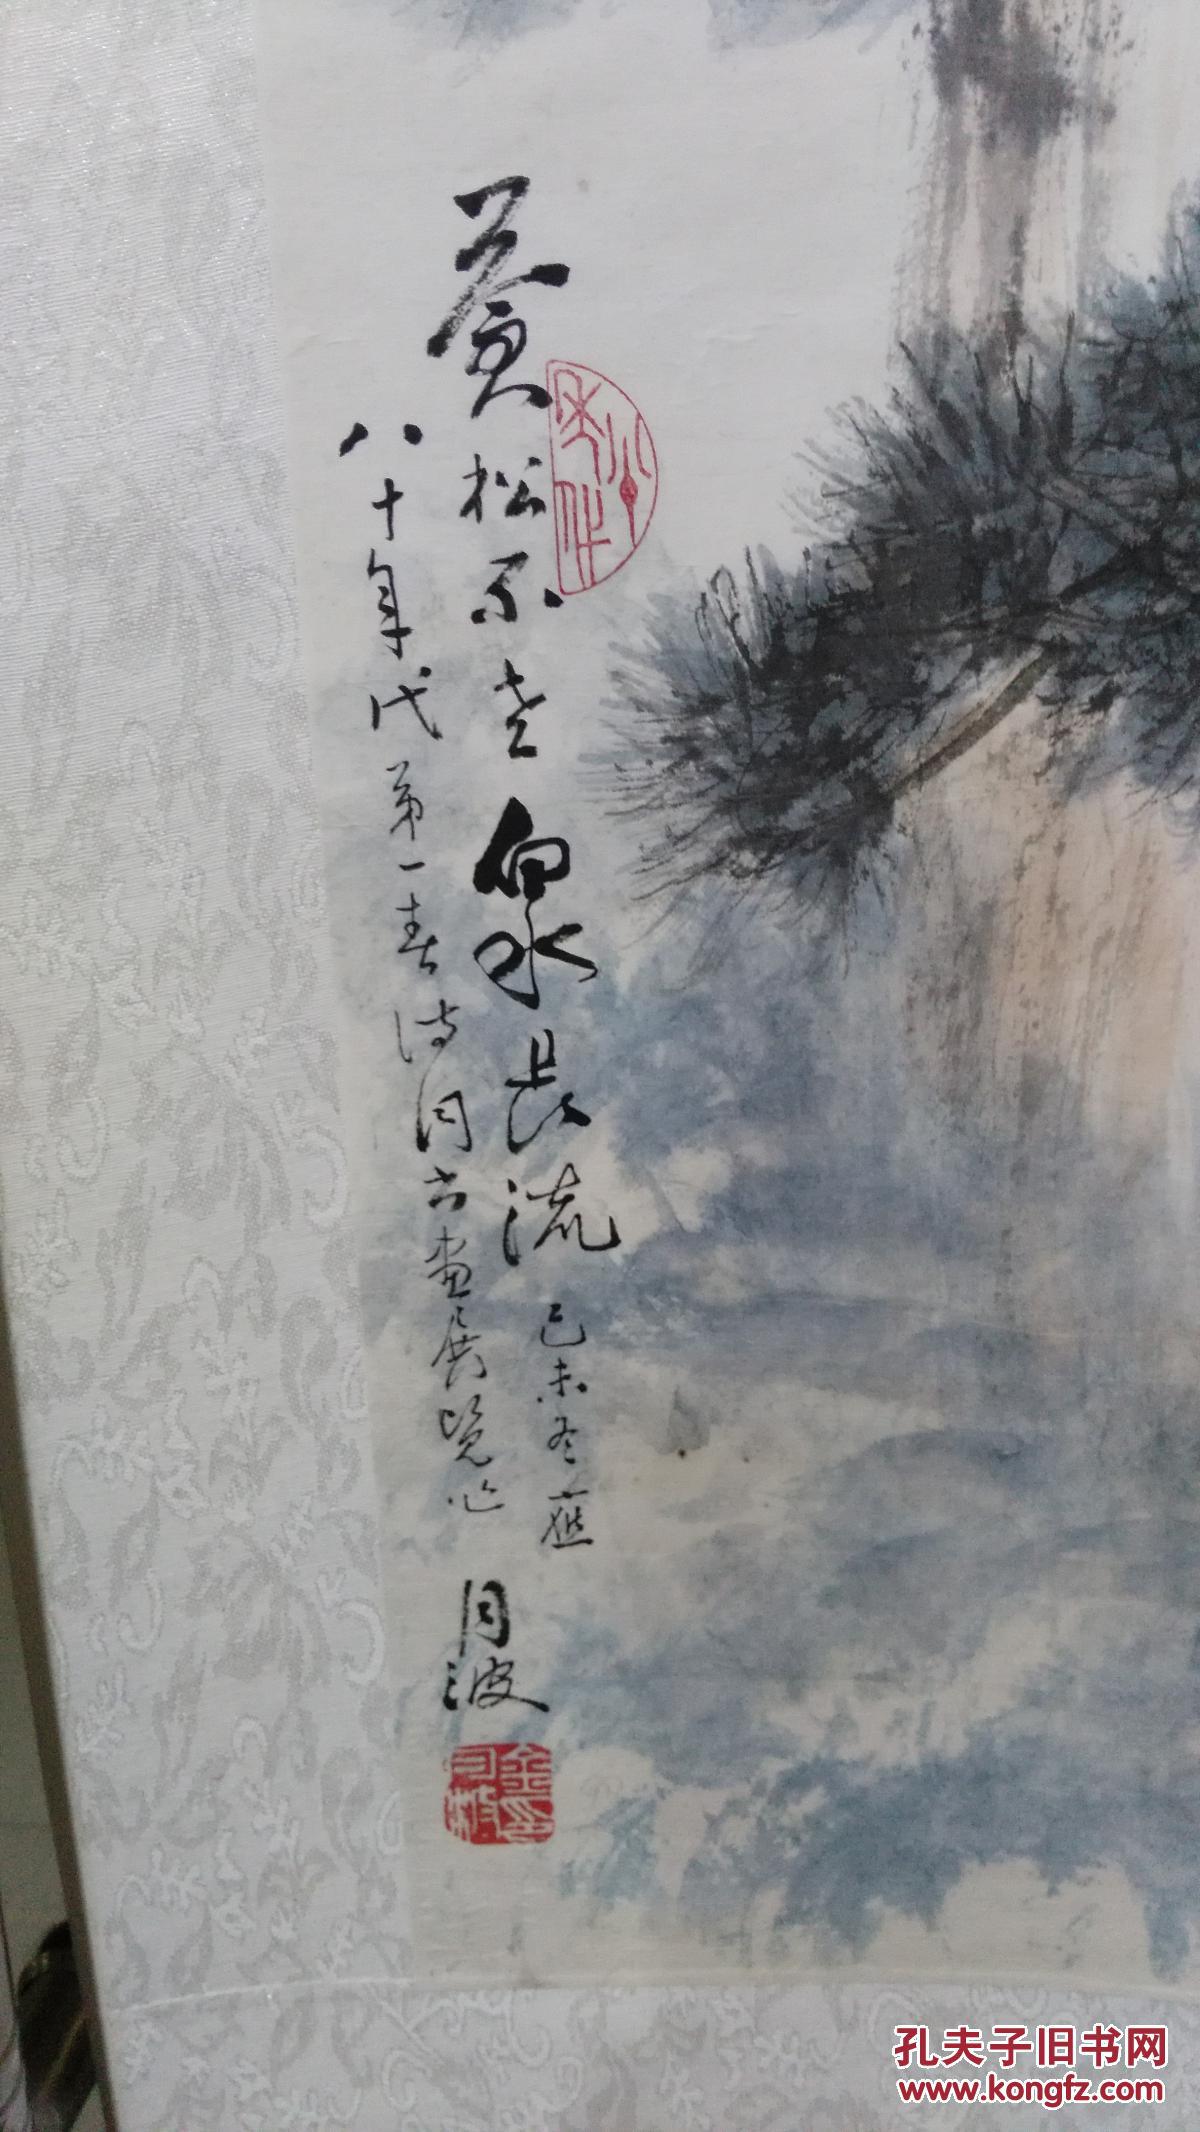 苍松不老泉长流 己未冬 应
八十年代第一春诗同书画展览心
月波
孔夫子旧书网
www.kongfz.com